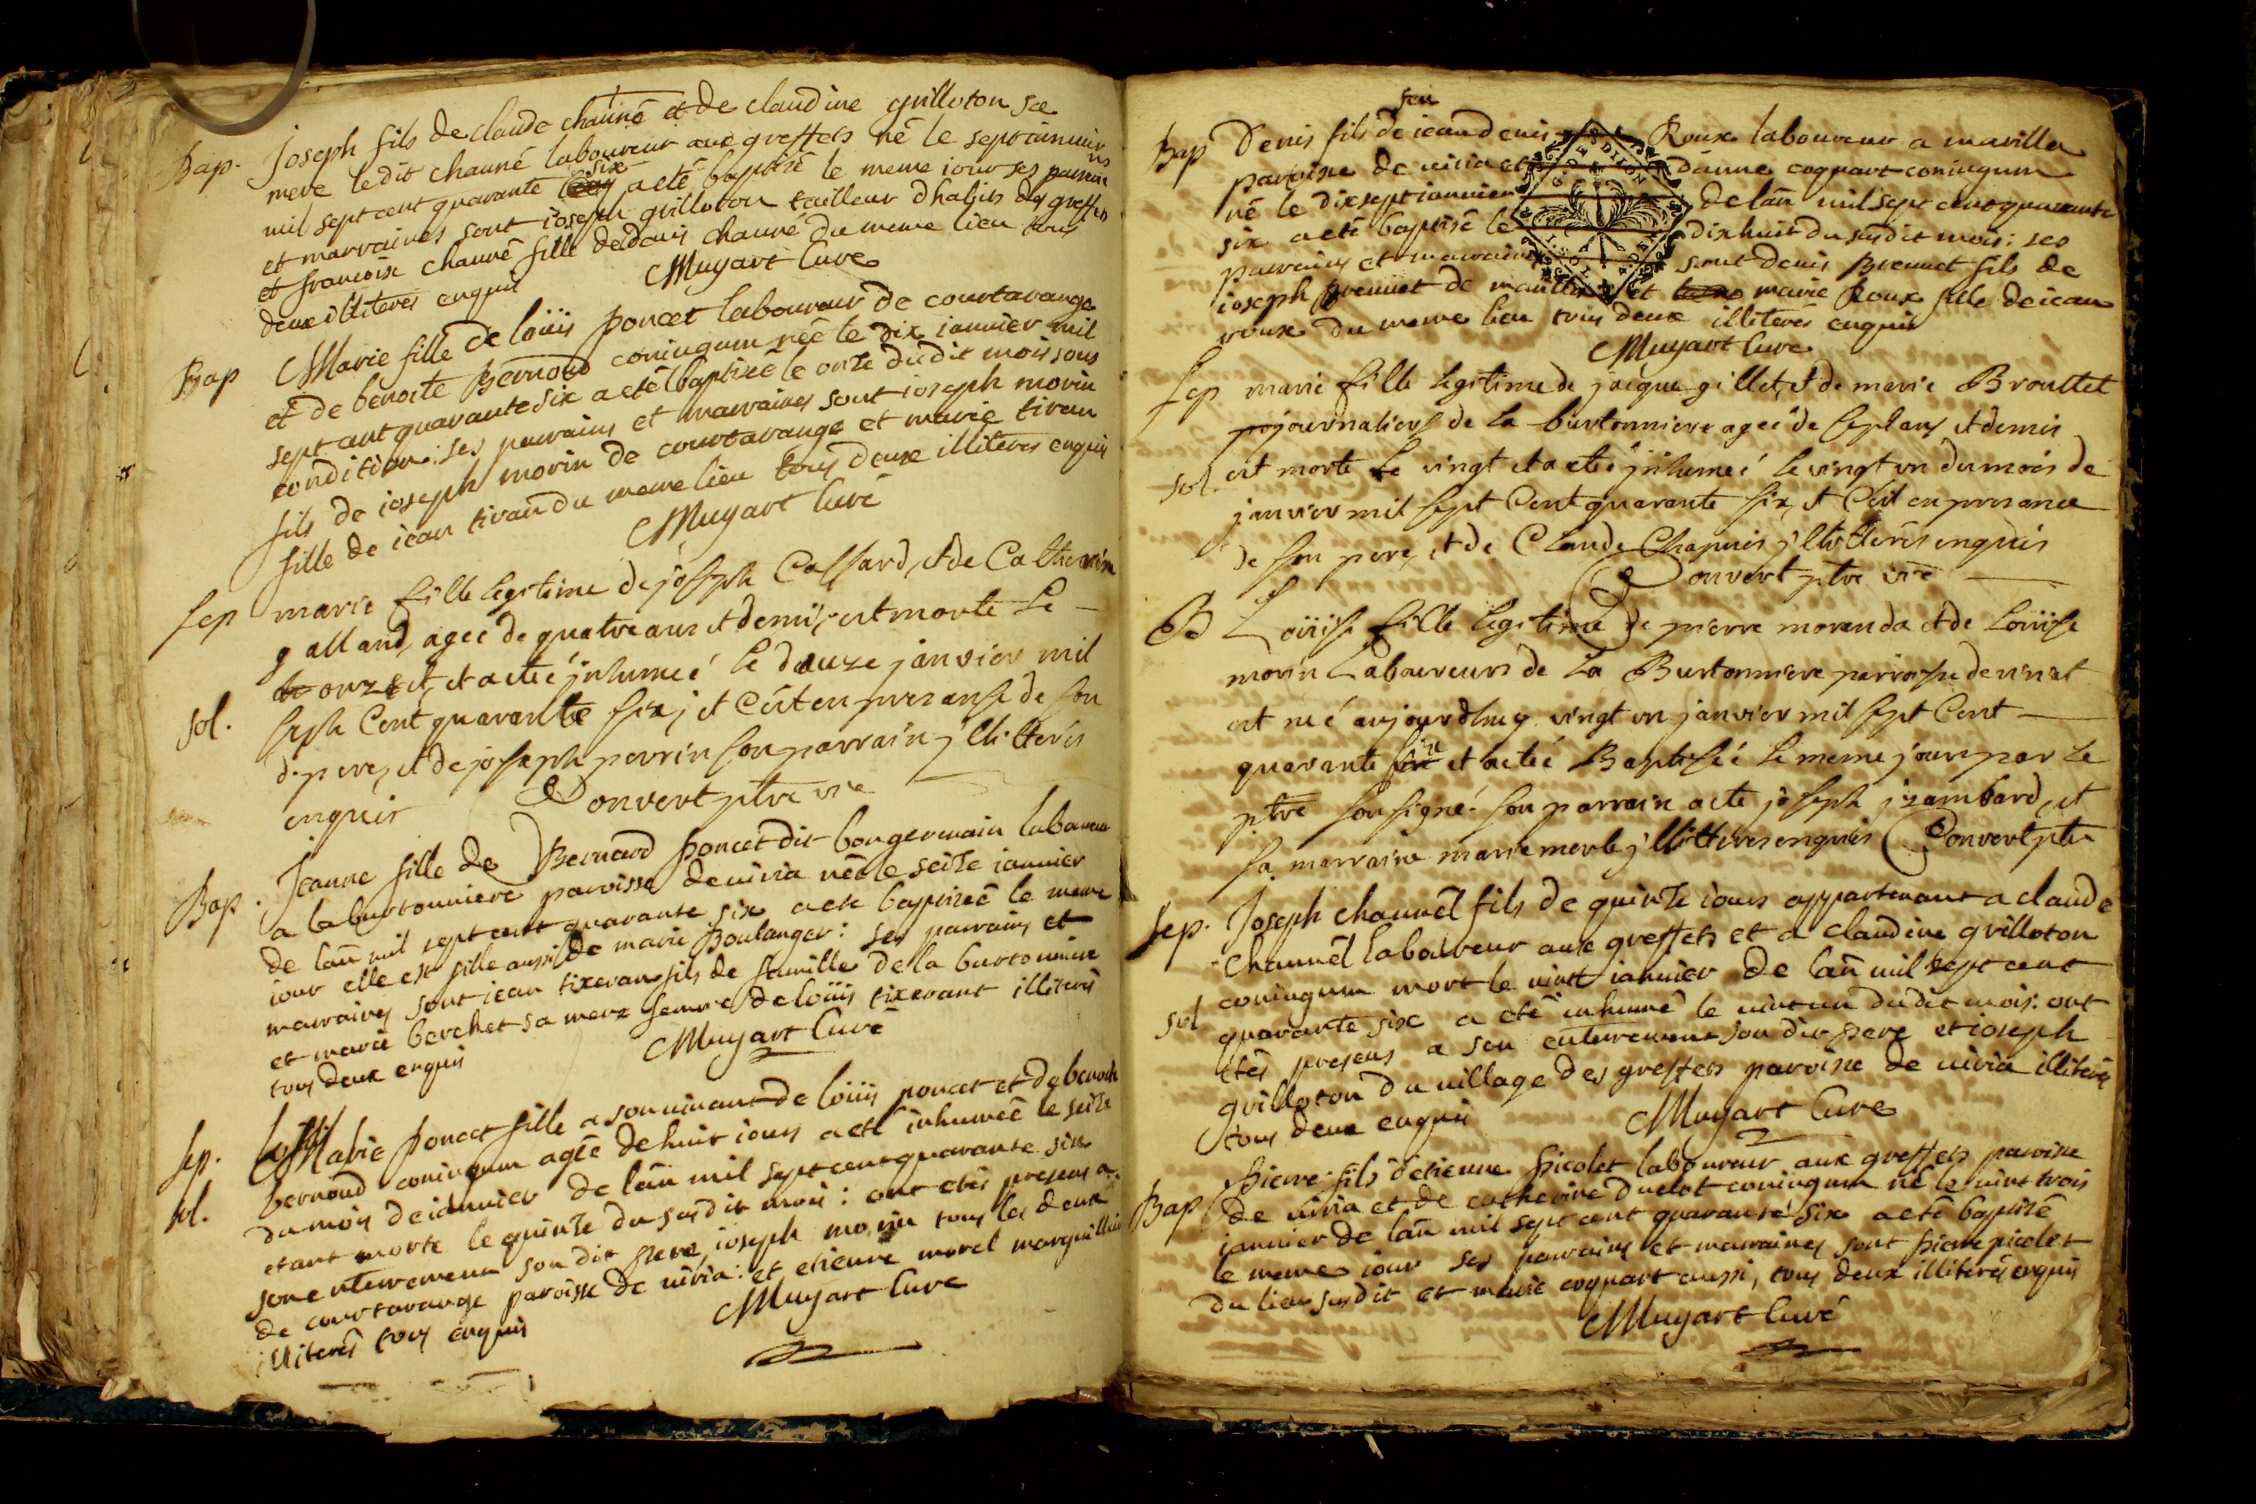 Bap. Joseph fils de claude chauné et de claudine grilloton sa
mere ledit chauné laboureur aux greffets né le sept iannuier
mil sept cent quarante six a eté baptisé le meme iour ses parrains
et marraines sont ioseph grilloton tailleur dhabits des greffets
et francoise chauné fille de denis chauné du meme lieu tous
deux illiterés enquis Mugart Curé
Bap Marie fille de loüis poncet laboureur de courtarange
et de benoite Bernoud coniugum née le dix iannier mil
sept cent quarante six a eté baptizée le onze dudit mois sous
condition: ses parrains et marraines sont ioseph morin
fils de ioseph morin de courtarange et marie tiran
fille de iean tiran du meme lieu tous deux illiterés enquis
Mugart Curé
sep marie fille legitime de joseph Cassard, et de Catherine
galland, agée de quatre ans et demis, est morte le
onze et, et a eteé jnhumeé le douze janvier mil
sol. sept Cent quarante six, et C'est en presanse de son
d. pere, et de joseph perrin son parrain jllitterés
enquis Convert ptre vre
Bap. Jeanne fille de Bernard poncet dit bongermain laboureur
a la burtonniere paroisse de uiria née le seize iannier
de lan mil sept cent quarante six a eté baptisée le meme
iour elle est fille aussi de marie Boulanger: ses parrains et
marraines sont iean tixeran fils de famille de la burtonniere
et marie berchet sa mere femme de loüis tixerant illiterés
tous deux enquis Mugart Curé
sep. Marie poncet fille a son uiuant de loüis poncet et de benoite
sol. bernoud coniugum agée de huit iours a eté inhumée le seize
du mois de iannier de lan mil sept cent quarante six
etant morte le quinze du susdit mois: ont etés presens a
son enterrement son dit pere, ioseph morin tous les deux
de courtarange paroisse de uiria: et etienne morel marguillier
illiterés tous enquis Mugart Curé
feu
Bap Denis fils de iean denis Roux laboureur a marilla
paroisse de uiria et danne coquart coniugum
né le dixsept iannier de lan mil sept cent quarante
six a eté baptisé le dixhuit du susdit mois: ses
parrains et marraines sont denis Brennet fils de
ioseph brennet de et marie Roux fille de iean
roux du meme lieu tous deux illiterés enquis
Mugart Curé
sep marie fille legitime de jaique gillet, et de marie Brouttet
journaliers de la burtonniere ageé de sept ans et demis
sol. est morte le vingt et a eteé jnhumeé le vingt un du mois de
janvier mil sept Cent quarante six, et C'est en presance
de son pere, et de Claude Chapuis jllitterés enquis
Convert ptre vre
B Loüise fille legitime de pierre morenda et de Loüise
morin Laboureurs de la Burtonniere parroisse de viriat
est né aujourdhuy vingt un janvier mil sept Cent
quarante six et a eteé Baptiseé le meme jour par le
ptre sousigné. son parrain a ete joseph jzambard, et
sa marraine marie merle jllitteres enquis Convert ptre
sep. Joseph chaunel fils de quinze iours appartenant a claude
chaunel laboureur aux greffets et a claudine grilloton
coniugum mort le uint iannier de lan mil sept cent
sol quarante six a eté inhumé le uint un dudit mois: ont
etés presens a son enterrement son dit pere et ioseph
grilloton du uillage des greffets paroisse de uiria illiterés
tous deux enquis Mugart Curé
Bap Pierre fils d'etienne picolet laboureur aux greffets paroisse
de uiria et de catherine duclot coniugum né le uint trois
iannier de lan mil sept cent quarante six a eté baptisé
le meme iour ses parrains et marraines sont pierre picolet
du lieu susdit et marie coquart aussi, tous deux illiterés enquis
Mugart Curé